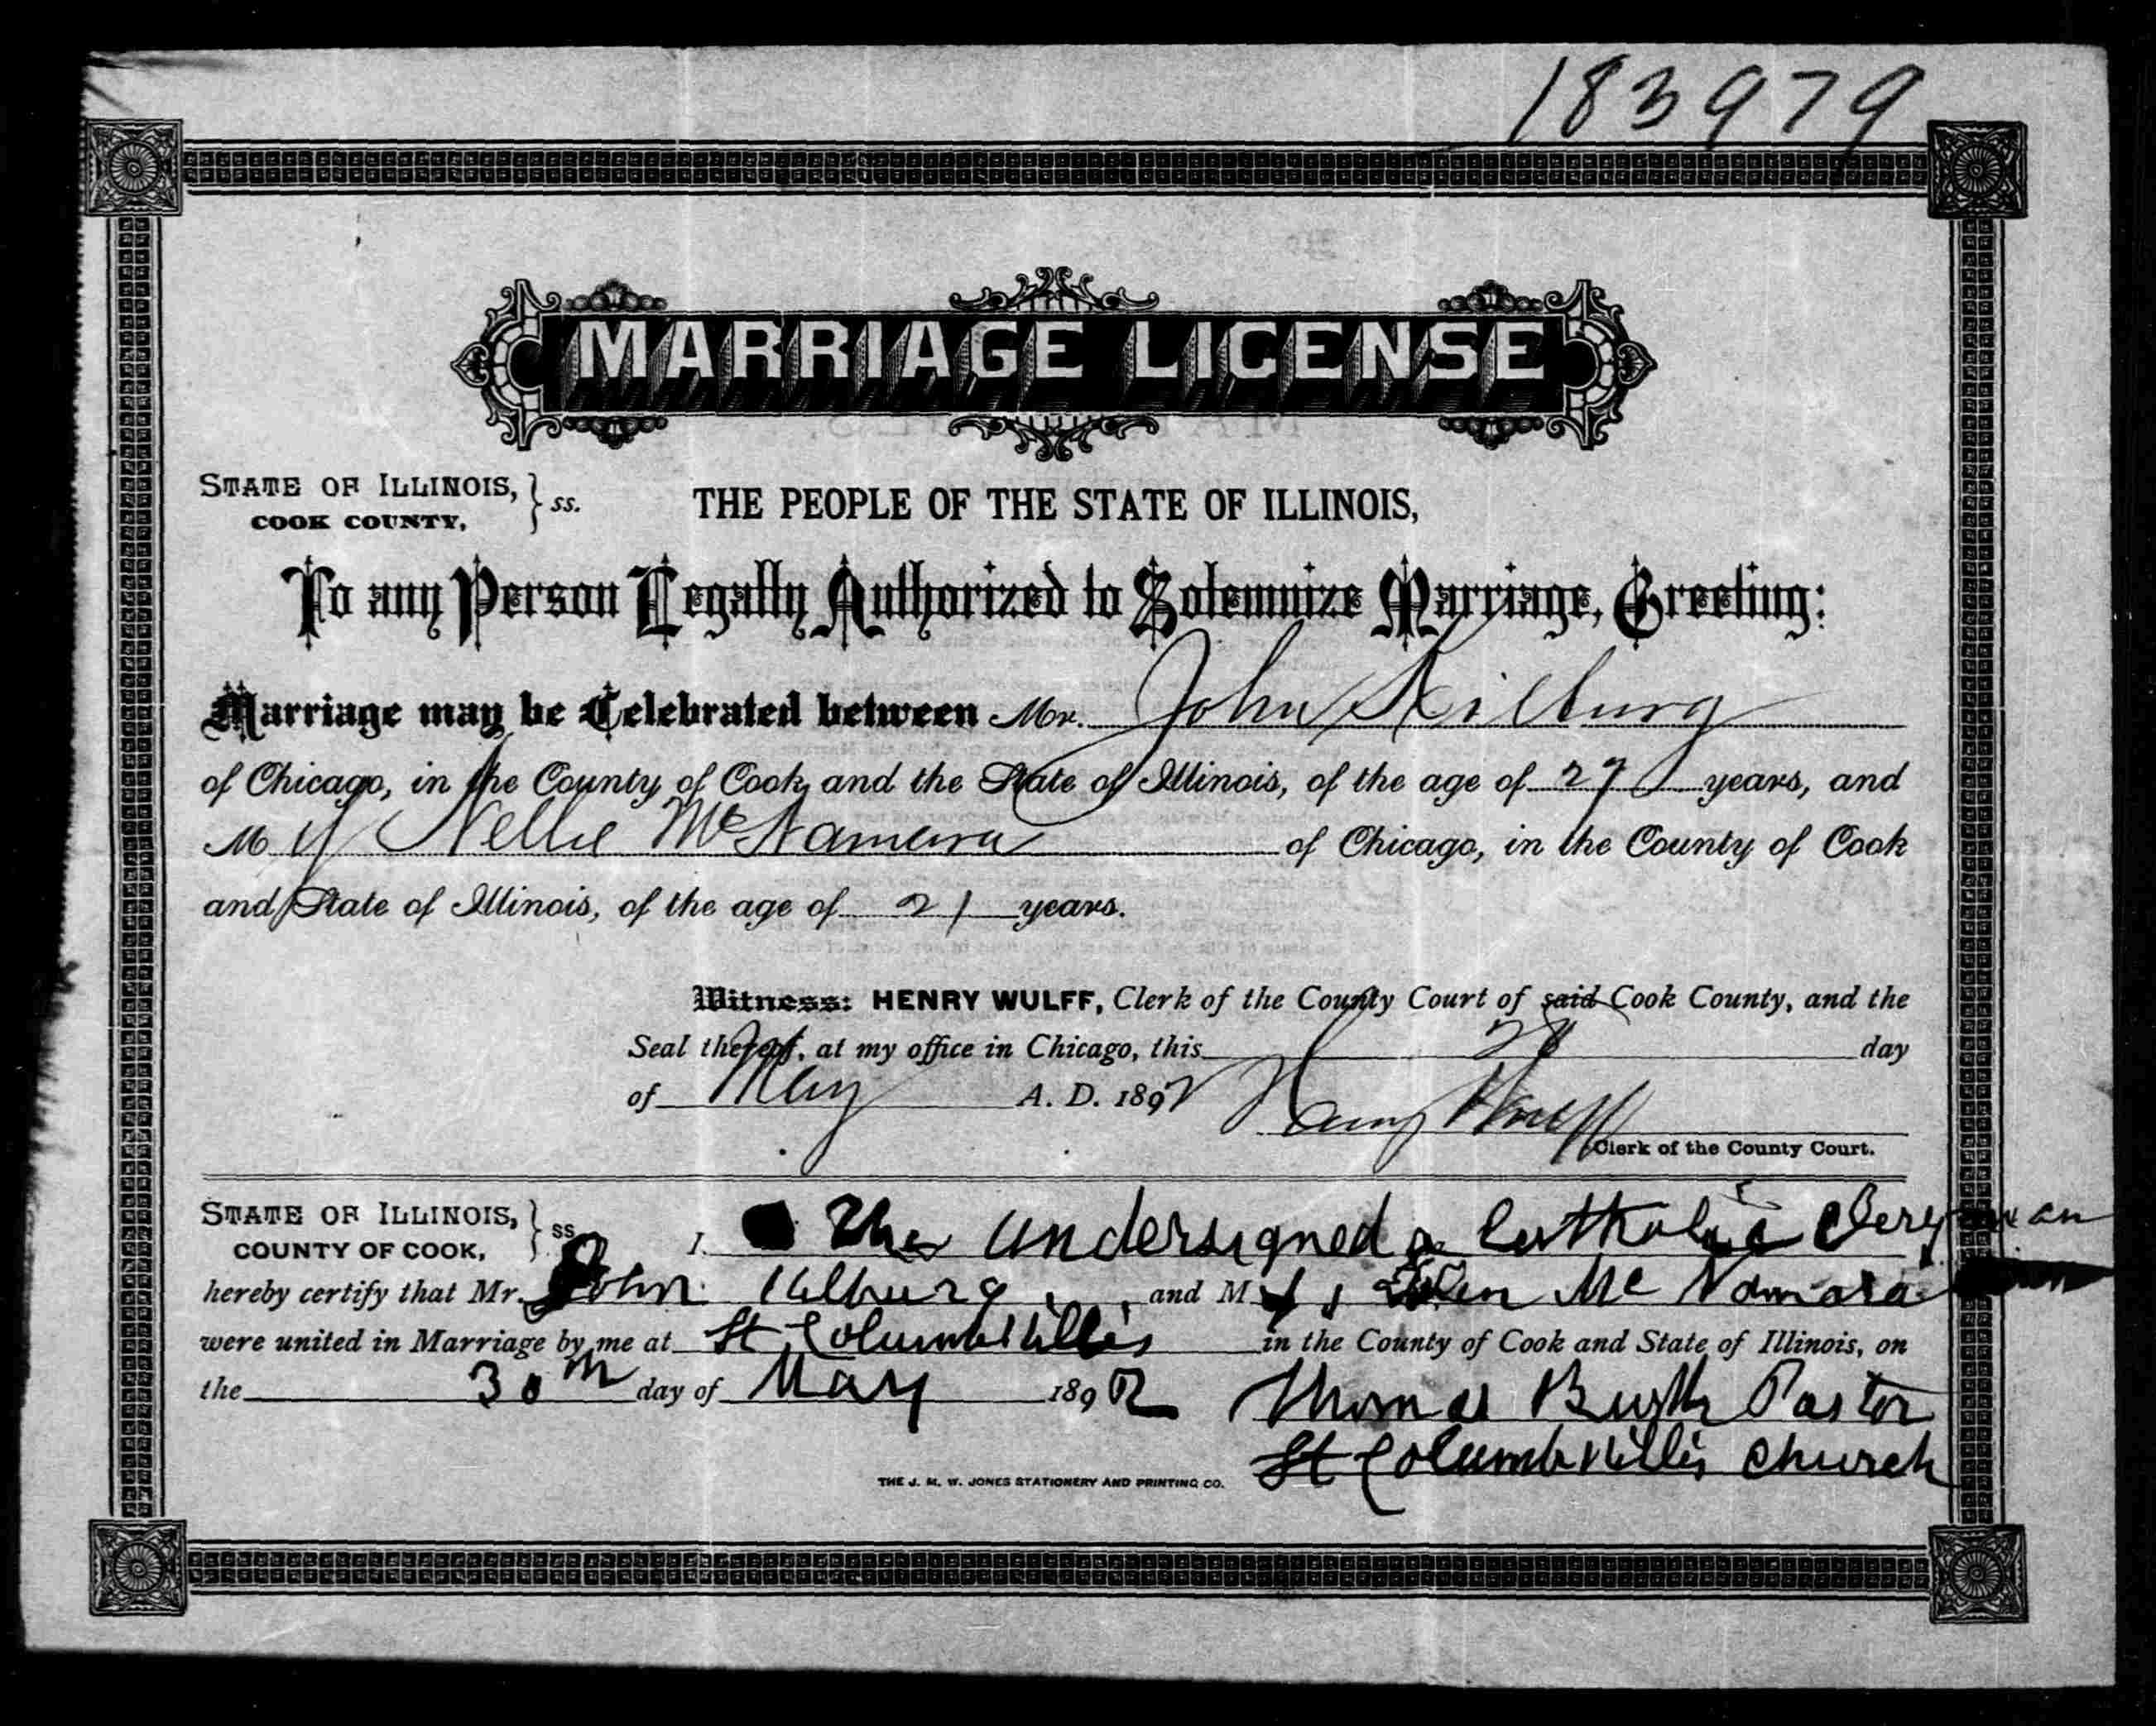 183979
MARRIAGE LICENSE
STATE OF ILLINOIS, } ss.
COOK COUNTY,
THE PEOPLE OF THE STATE OF ILLINOIS,
To any Person Legally Authorized to Solemnize Marriage, Greeting:
Marriage may be Celebrated between Mr. John Kilburg
of Chicago, in the County of Cook and the State of Illinois, of the age of 27 years, and
M Nellie McNamara of Chicago, in the County of Cook
and State of Illinois, of the age of 21 years.
Witness: HENRY WULFF, Clerk of the County Court of said Cook County, and the
Seal thereof, at my office in Chicago, this 28 day
of May A. D. 1892 Henry Wulff
Clerk of the County Court.
STATE OF ILLINOIS, } ss.
COUNTY OF COOK,
I, The undersigned a Catholic Clergyman
hereby certify that Mr. John Kilburg, and M Ellen Mc Namara
were united in Marriage by me at St Columbkillis in the County of Cook and State of Illinois, on
the 30th day of May 1892 Thomas Burke Pastor
St Columbkillis Church
THE J. M. W. JONES STATIONERY AND PRINTING CO.